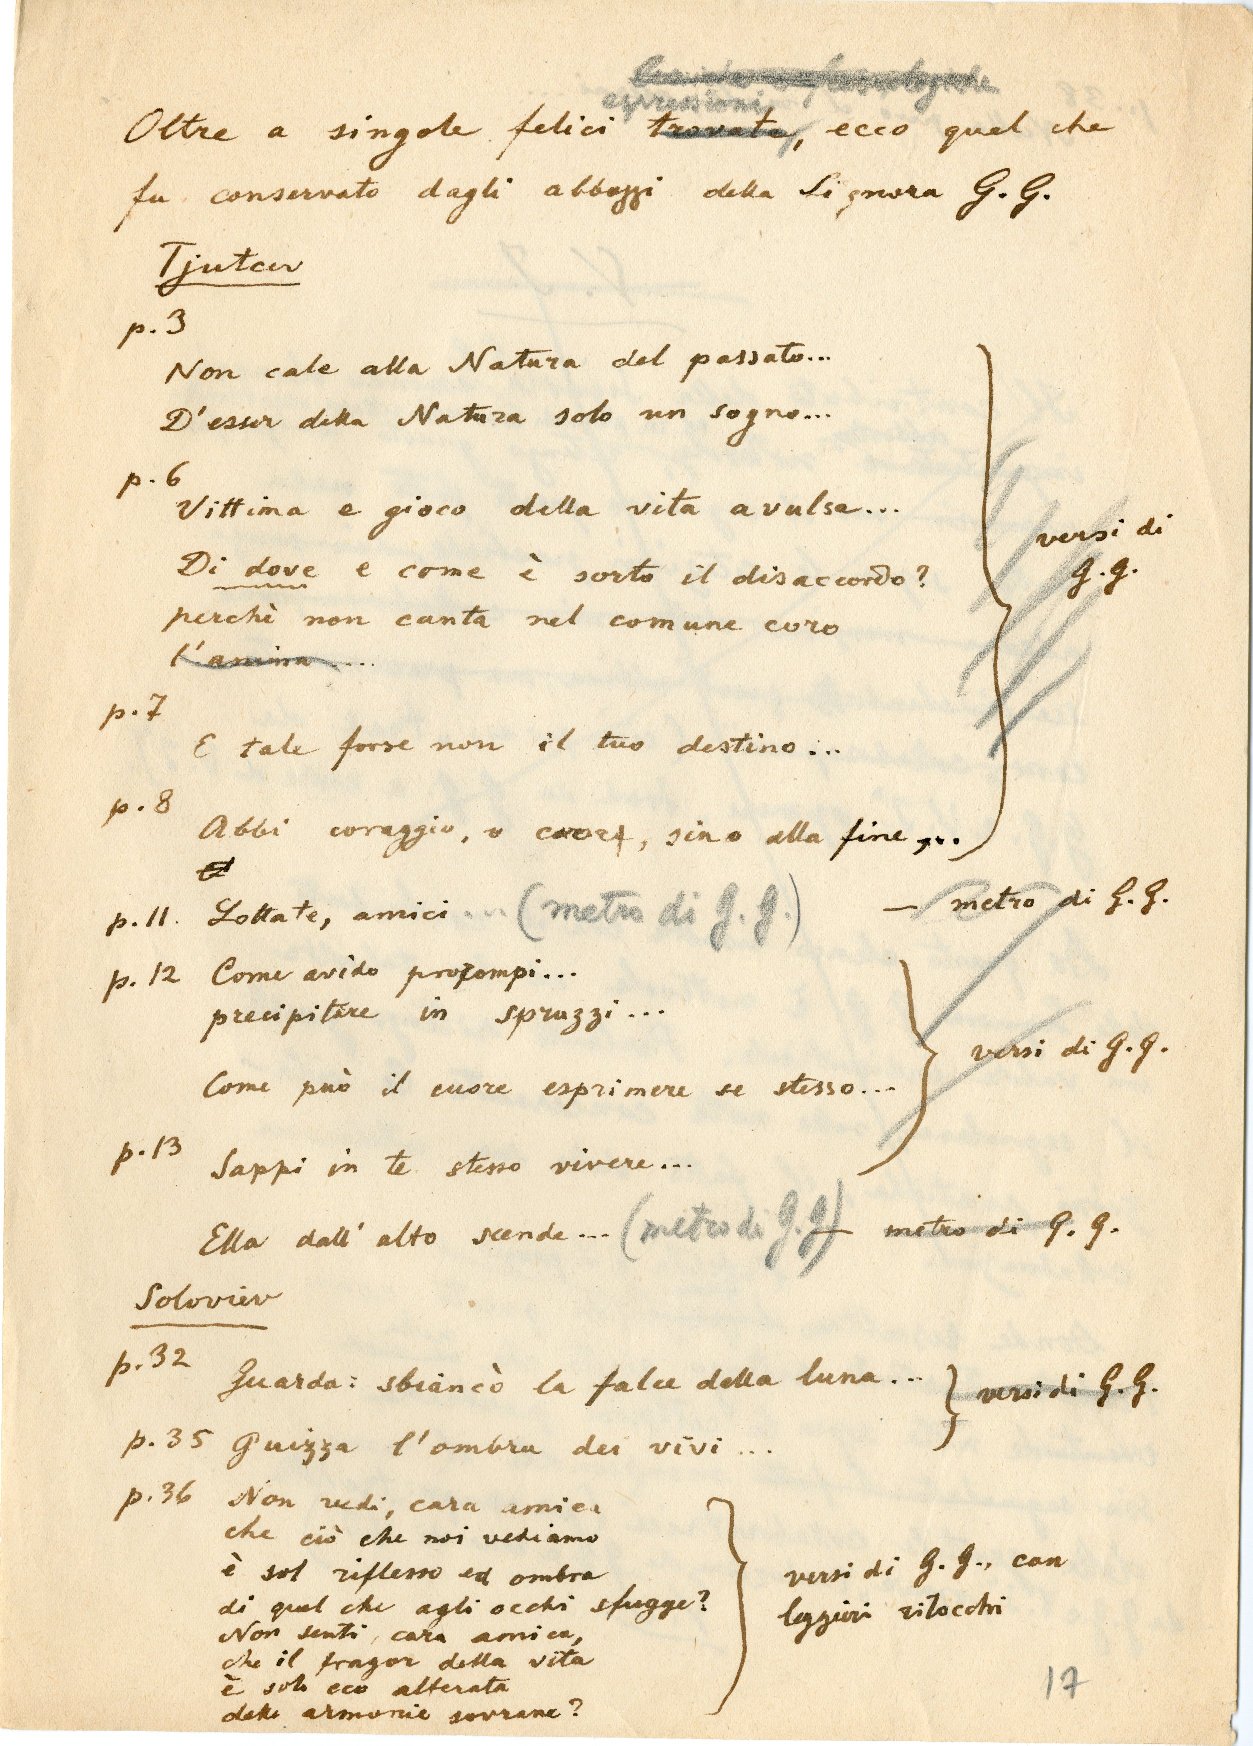 espressioni
Oltre a singole felici trovate, ecco quel che
fu conservato dagli abbozzi della Signora G. G.
Tjutcev
p. 3
Non cale alla Natura del passato...
D'esser della Natura solo un sogno...
p. 6
Vittima e gioco della vita avulsa...
Di dove e come è sorto il disaccordo?
perchè non canta nel comune coro
l'anima....
versi di
G. G.
p. 7
E tale forse non il tuo destino...
p. 8
Abbi coraggio, o cuore, sino alla fine...
p. 11. Lottate, amici... (metro di G. G.) — metro di G. G.
p. 12 Come avido prorompi...
precipitare in spruzzi...
versi di G. G.
Come può il cuore esprimere se stesso...
p. 13
Sappi in te stesso vivere...
Ella dall'alto scende... (metro di G. G) — metro di G. G.
Soloviev
p. 32
Guarda: sbiancò la falce della luna... versi di G. G.
p. 35 Guizza l'ombra dei vivi...
p. 36 Non vedi, cara amica
che ciò che noi vediamo
è sol riflesso ed ombra
di quel che agli occhi sfugge?
Non senti, cara amica,
che il fragor della vita
è solo eco alterata
delle armonie sovrane?
versi di G. G., con
leggieri ritocchi
17